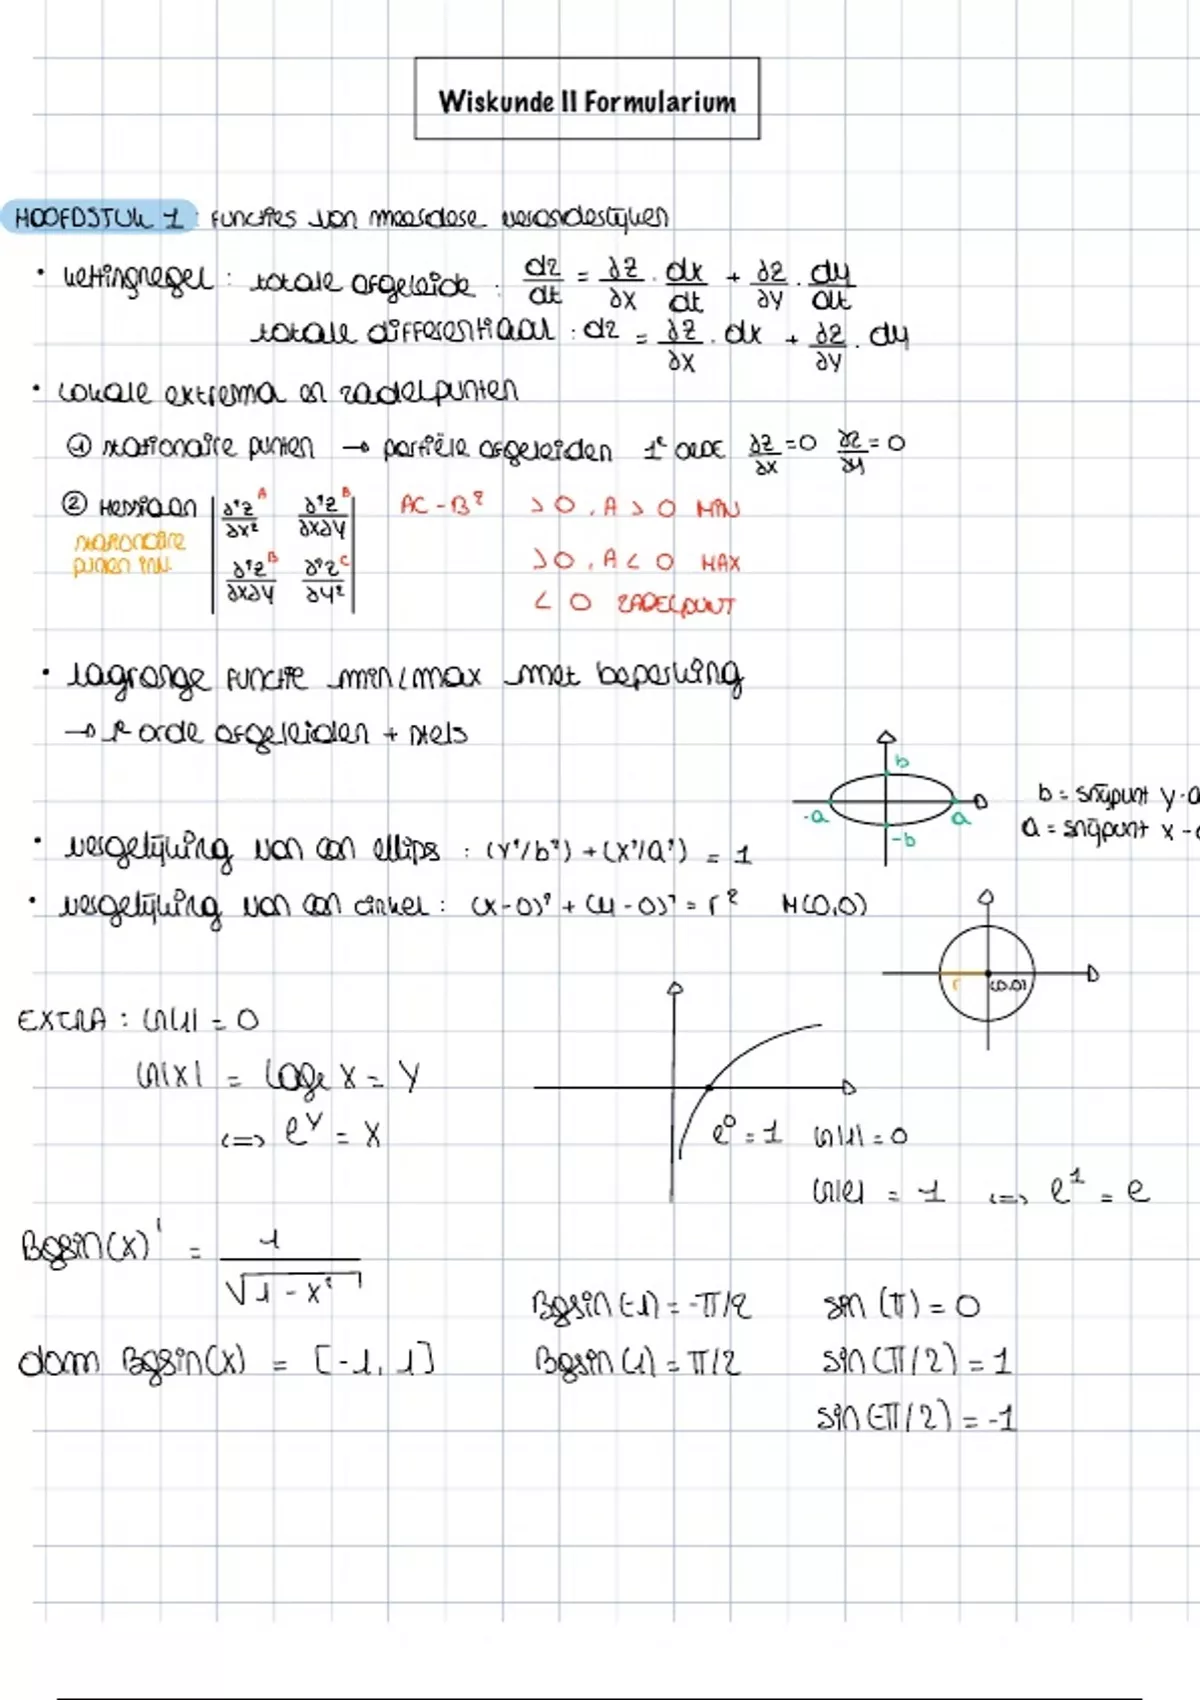 Wiskunde II Formularium
HOOFDSTUK 1 : Functies van meerdere veranderlijken
• kettingregel : totale afgeleide : dz/dt = ∂z/∂x · dx/dt + ∂z/∂y · dy/dt
totale differentiaal : dz = ∂z/∂x · dx + ∂z/∂y · dy
• Lokale extrema en zadelpunten
① stationaire punten → partiële afgeleiden 1e orde ∂z/∂x = 0 ∂z/∂y = 0
② Hessiaan | ∂²z/∂x² A ∂²z/∂x∂y B | AC - B² > 0, A > 0 MIN
stationaire punten inv. | ∂²z/∂x∂y B ∂²z/∂y² C | > 0, A < 0 MAX
< 0 ZADELPUNT
• Lagrange functie min/max met beperking
→ 1e orde afgeleiden + stels
b
-a a
-b
b = snijpunt y-a
a = snijpunt x-a
• vergelijking van een ellips : (y²/b²) + (x²/a²) = 1
• vergelijking van een cirkel : (x-0)² + (y-0)² = r² M(0,0)
r (0,0)
EXTRA : ln(1) = 0
ln(x) = loge x = y
<=> e^y = x
e⁰ = 1 ln(1) = 0
ln(e) = 1 <=> e¹ = e
Bgsin(x)' = 1/√(1 - x²)
Bgsin(-1) = -π/2 sin(π) = 0
dom Bgsin(x) = [-1, 1] Bgsin(1) = π/2 sin(π/2) = 1
sin(-π/2) = -1